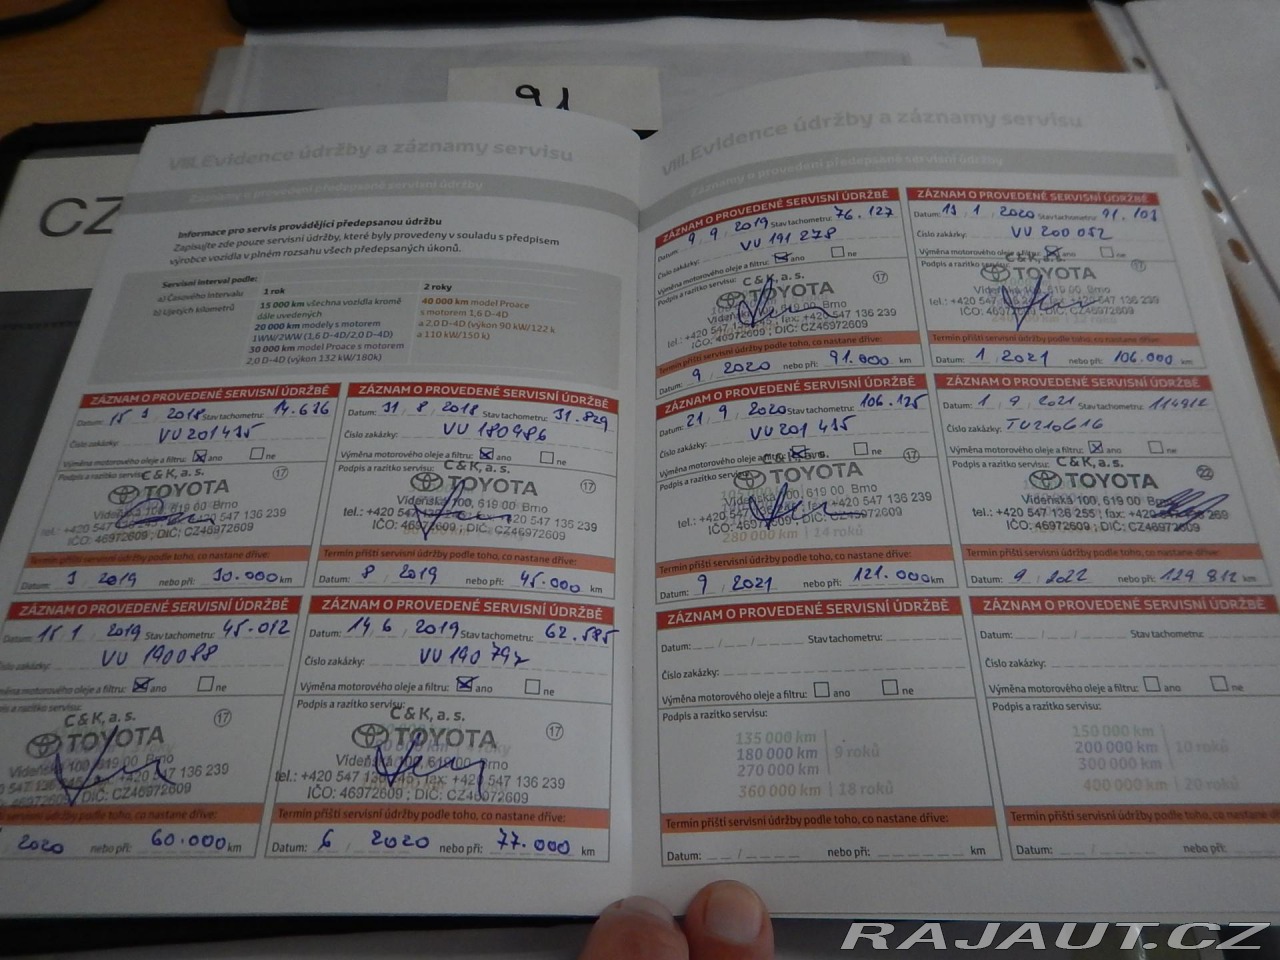 91
CZ
VIII. Evidence údržby a záznamy servisu
Záznamy o provedení předepsané servisní údržby
Informace pro servis provádějící předepsanou údržbu
Zapisujte zde pouze servisní údržby, které byly provedeny v souladu s předpisem
výrobce vozidla v plném rozsahu všech předepsaných úkonů.
Servisní interval podle:
a) Časového intervalu 1 rok 2 roky
b) Ujetých kilometrů
15 000 km všechna vozidla kromě
dále uvedených
20 000 km modely s motorem
1WW/2WW (1,6 D-4D/2,0 D-4D)
30 000 km model Proace s motorem
2,0 D-4D (výkon 132 kW/180k)
40 000 km model Proace
s motorem 1,6 D-4D
a 2,0 D-4D (výkon 90 kW/122 k
a 110 kW/150 k)
ZÁZNAM O PROVEDENÉ SERVISNÍ ÚDRŽBĚ
Datum: 15 1 2018 Stav tachometru: 14.636
Číslo zakázky: VU201435
Výměna motorového oleje a filtru: ano ne
Podpis a razítko servisu:
C & K, a. s. 17
TOYOTA
Vídeňská 100, 619 00 Brno
+420 547 +420 547 136 239
IČO: 46972609 ; DIČ: CZ46972609
Termín příští servisní údržby podle toho, co nastane dříve:
Datum: 1 2019 nebo při: 30.000 km
ZÁZNAM O PROVEDENÉ SERVISNÍ ÚDRŽBĚ
Datum: 31 8 2018 Stav tachometru: 31.829
Číslo zakázky: VU 180986
Výměna motorového oleje a filtru: ano ne
Podpis a razítko servisu:
C & K, a. s. 17
TOYOTA
Vídeňská 100, 619 00 Brno
tel.: +420 547 +420 547 136 239
IČO: 46972609 ; DIČ: CZ46972609
Termín příští servisní údržby podle toho, co nastane dříve:
Datum: 8 2019 nebo při: 45.000 km
ZÁZNAM O PROVEDENÉ SERVISNÍ ÚDRŽBĚ
Datum: 15 1 2019 Stav tachometru: 45.012
Číslo zakázky: VU 190088
Výměna motorového oleje a filtru: ano ne
Podpis a razítko servisu:
C & K, a. s. 17
TOYOTA
Vídeňská 100, 619 00 Brno
+420 547 136 239
IČO: 46972609 ; DIČ: CZ46972609
servisní údržby podle toho, co nastane dříve:
2020 nebo při: 60.000 km
ZÁZNAM O PROVEDENÉ SERVISNÍ ÚDRŽBĚ
Datum: 14 6 2019 Stav tachometru: 62.585
Číslo zakázky: VU 190797
Výměna motorového oleje a filtru: ano ne
Podpis a razítko servisu:
C & K, a. s. 17
TOYOTA
Vídeňská 100, 619 00 Brno
tel.: +420 547 fax: +420 547 136 239
IČO: 46972609 ; DIČ: CZ46972609
Termín příští servisní údržby podle toho, co nastane dříve:
Datum: 6 2020 nebo při: 77.000 km
VIII. Evidence údržby a záznamy servisu
Záznamy o provedení předepsané servisní údržby
ZÁZNAM O PROVEDENÉ SERVISNÍ ÚDRŽBĚ
Datum: 9 9 2019 Stav tachometru: 76.127
Číslo zakázky: VU 191 278
Výměna motorového oleje a filtru: ano ne
Podpis a razítko servisu:
C & K, a. s. 17
TOYOTA
Vídeňská 100, 619 00 Brno
tel.: +420 547 fax: +420 547 136 239
IČO: 46972609 ; DIČ: CZ46972609
Termín příští servisní údržby podle toho, co nastane dříve:
Datum: 9 2020 nebo při: 91.000 km
ZÁZNAM O PROVEDENÉ SERVISNÍ ÚDRŽBĚ
Datum: 13 1 2020 Stav tachometru: 91.103
Číslo zakázky: VU 200052
Výměna motorového oleje a filtru: ano ne
Podpis a razítko servisu:
C & K, a. s. 17
TOYOTA
Vídeňská 100, 619 00 Brno
tel.: +420 547 +420 547 136 239
IČO: 46972609 ; DIČ: CZ46972609
Termín příští servisní údržby podle toho, co nastane dříve:
Datum: 1 2021 nebo při: 106.000 km
ZÁZNAM O PROVEDENÉ SERVISNÍ ÚDRŽBĚ
Datum: 21 9 2020 Stav tachometru: 106.125
Číslo zakázky: VU201 435
Výměna motorového oleje a filtru: ano ne
Podpis a razítko servisu:
C & K, a. s. 17
TOYOTA
Vídeňská 100, 619 00 Brno
tel.: +420 547 fax: +420 547 136 239
IČO: 46972609 ; DIČ: CZ46972609
280 000 km | 14 roků
Termín příští servisní údržby podle toho, co nastane dříve:
Datum: 9 2021 nebo při: 121.000 km
ZÁZNAM O PROVEDENÉ SERVISNÍ ÚDRŽBĚ
Datum: 1 9 2021 Stav tachometru: 114912
Číslo zakázky: TU210616
Výměna motorového oleje a filtru: ano ne
Podpis a razítko servisu:
C & K, a. s. 22
TOYOTA
Vídeňská 100, 619 00 Brno
tel.: +420 547 136 255 ; fax: +420 547 136 269
IČO: 46972609 ; DIČ: CZ46972609
Termín příští servisní údržby podle toho, co nastane dříve:
Datum: 9 2022 nebo při: 129 812 km
ZÁZNAM O PROVEDENÉ SERVISNÍ ÚDRŽBĚ
Datum: Stav tachometru:
Číslo zakázky:
Výměna motorového oleje a filtru: ano ne
Podpis a razítko servisu:
135 000 km
180 000 km | 9 roků
270 000 km
360 000 km | 18 roků
Termín příští servisní údržby podle toho, co nastane dříve:
Datum: nebo při: km
ZÁZNAM O PROVEDENÉ SERVISNÍ ÚDRŽBĚ
Datum: Stav tachometru:
Číslo zakázky:
Výměna motorového oleje a filtru: ano ne
Podpis a razítko servisu:
150 000 km
200 000 km | 10 roků
300 000 km
400 000 km | 20 roků
Termín příští servisní údržby podle toho, co nastane dříve:
Datum: nebo při:
RAJAUT.CZ